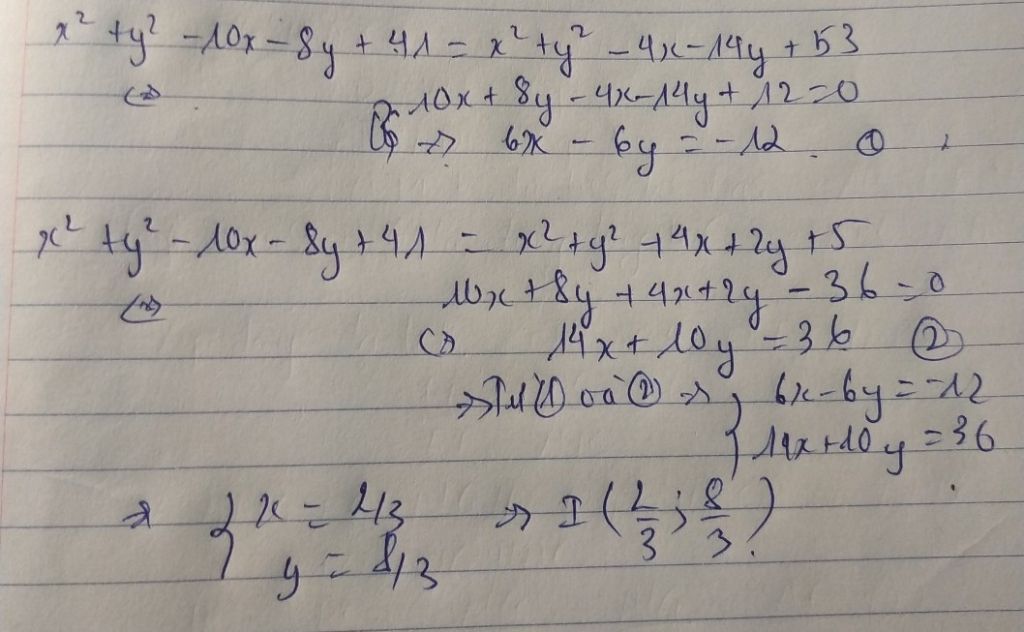 x² + y² - 10x - 8y + 41 = x² + y² - 4x - 14y + 53
<=> 10x + 8y - 4x - 14y + 12 = 0
=> 6x - 6y = -12. ①
x² + y² - 10x - 8y + 41 = x² + y² + 4x + 2y + 5
<=> 10x + 8y + 4x + 2y - 36 = 0
<=> 14x + 10y = 36 ②
=> Từ ① và ② => { 6x - 6y = -12
14x + 10y = 36
=> { x = 2/3 => I (2/3; 8/3).
y = 8/3